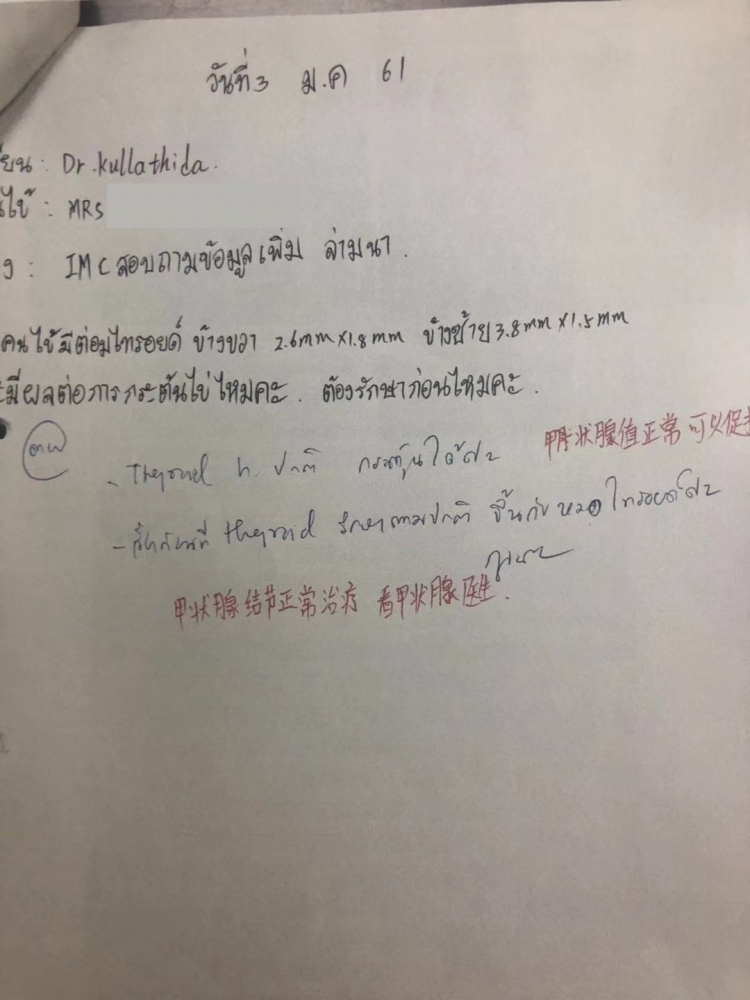 วันที่ 3 ม.ค 61
ียน : Dr.kullathida.
นไข้ : MRS
ง : IMC สอบถามข้อมูลเพิ่ม ล่ามนา.
คนไข้มีต่อมไทรอยด์ ข้างขวา 2.6mm x 1.8mm ข้างซ้าย 3.8mm x 1.5mm
มีผลต่อการกระตุ้นไข่ไหมคะ. ต้องรักษาก่อนไหมคะ.
ตอบ
- Thyroid h. ปกติ กระตุ้นได้ค่ะ 甲状腺值正常可以促
- thyroid รักษาตามปกติ ขึ้นกับหมอไทรอยด์ค่ะ
甲状腺结节正常治疗 看甲状腺医生.